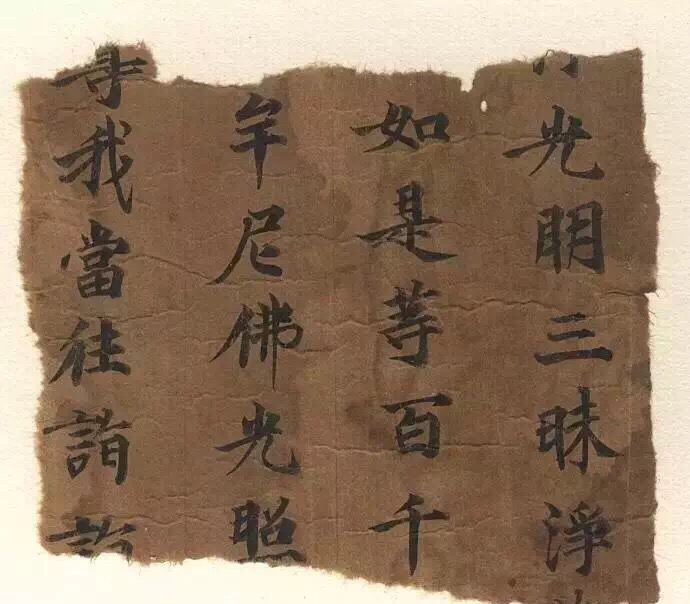 光明三昧淨
如是等百千
牟尼佛光照
我當往詣